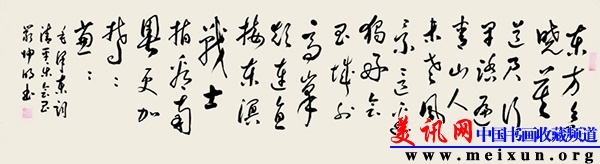 东方欲
晓莫
道君行
早踏遍
青山人
未老风
景这边
独好会
昌城外
高峰
颠连直
接东溟
戰士
指看南
粤更加
郁々
葱々
毛泽东词
清平乐会昌
坤明书
美讯网 中国书画收藏频道
www.meixun.org